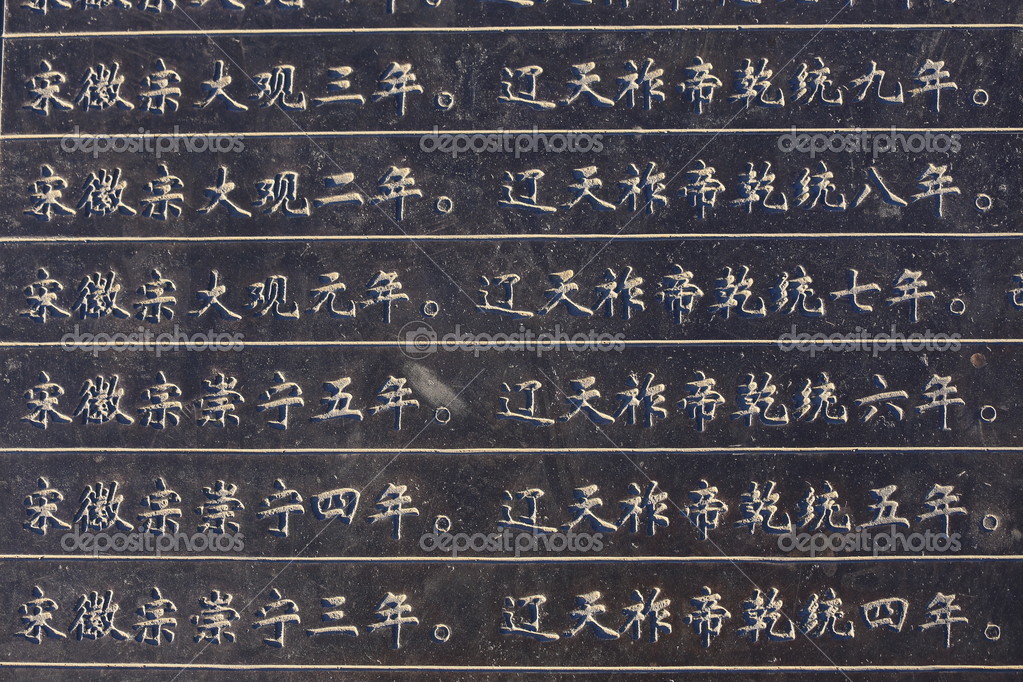 宋徽宗大观三年。 辽天祚帝乾统九年。
宋徽宗大观二年。 辽天祚帝乾统八年。
宋徽宗大观元年。 辽天祚帝乾统七年。
宋徽宗崇宁五年。 辽天祚帝乾统六年。
宋徽宗崇宁四年。 辽天祚帝乾统五年。
宋徽宗崇宁三年。 辽天祚帝乾统四年。
depositphotos depositphotos depositphotos
depositphotos depositphotos depositphotos
depositphotos depositphotos depositphotos